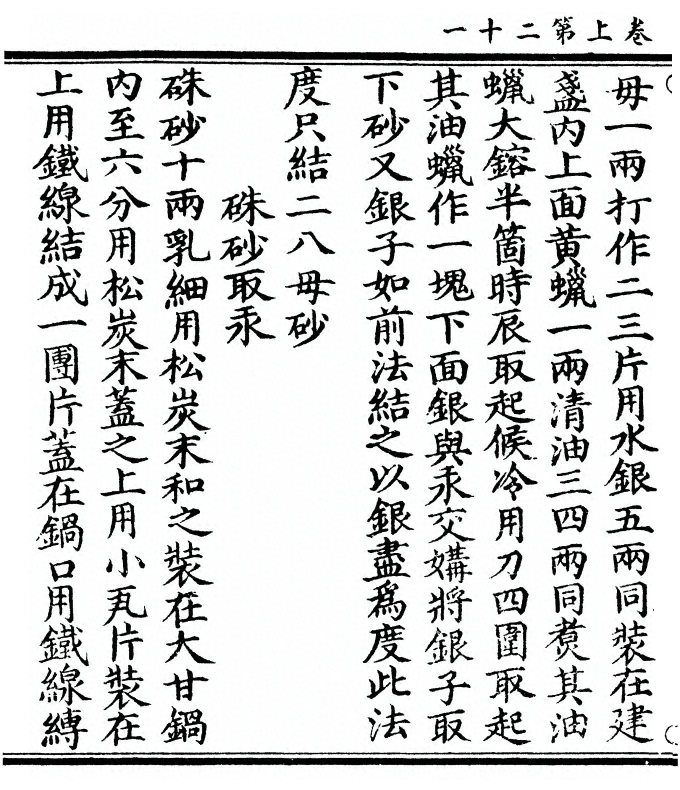 卷上第二十一
毋一兩打作二三片用水銀五兩同裝在建
盞內上面黃蠟一兩清油三四兩同煑其油
蠟大鎔半箇時辰取起候冷用刀四圍取起
其油蠟作一塊下面銀與汞交媾將銀子取
下砂又銀子如前法結之以銀盡爲度此法
度只結二八毋砂
硃砂取汞
硃砂十兩乳細用松炭末和之裝在大甘鍋
內至六分用松炭末蓋之上用小瓦片裝在
上用鐵線結成一團片蓋在鍋口用鐵線縛